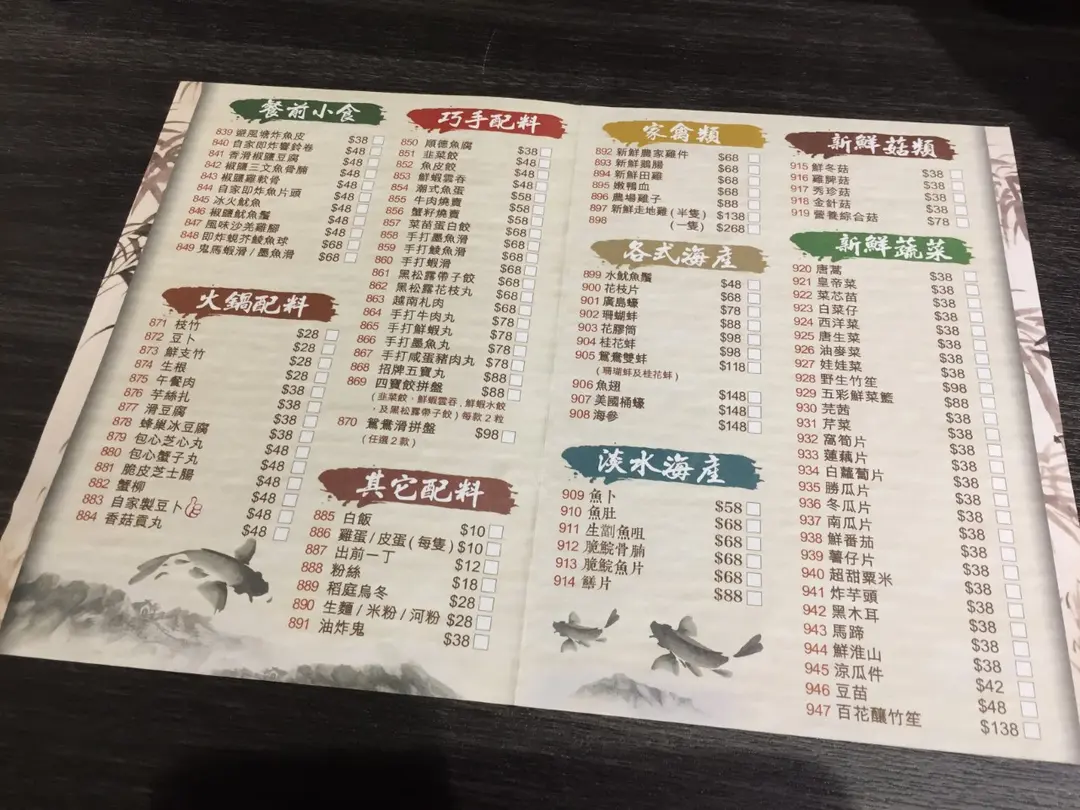 餐前小食
839 避風塘炸魚皮 $38
840 自家即炸響鈴卷 $48
841 香滑椒鹽豆腐 $48
842 椒鹽三文魚骨腩 $48
843 椒鹽雞軟骨 $48
844 自家即炸魚片頭 $48
845 冰火魷魚 $48
846 椒鹽魷魚鬚 $48
847 風味沙羌雞腳 $48
848 即炸蜆芥鯪魚球 $68
849 鬼馬蝦滑/墨魚滑 $68
火鍋配料
871 枝竹 $28
872 豆卜 $28
873 鮮支竹 $28
874 生根 $28
875 午餐肉 $38
876 芋絲扎 $38
877 滑豆腐 $38
878 蜂巢冰豆腐 $38
879 包心芝心丸 $48
880 包心蟹子丸 $48
881 脆皮芝士腸 $48
882 蟹柳 $48
883 自家製豆卜 $48
884 香菇貢丸 $48
巧手配料
850 順德魚腐 $38
851 韭菜餃 $48
852 魚皮餃 $48
853 鮮蝦雲吞 $48
854 潮式魚蛋 $48
855 牛肉燒賣 $58
856 蟹籽燒賣 $58
857 菜苗蛋白餃 $68
858 手打墨魚滑 $68
859 手打鯪魚滑 $68
860 手打蝦滑 $68
861 黑松露帶子餃 $68
862 黑松露花枝丸 $68
863 越南札肉 $68
864 手打牛肉丸 $78
865 手打鮮蝦丸 $78
866 手打墨魚丸 $78
867 手打咸蛋豬肉丸 $78
868 招牌五寶丸 $88
869 四寶餃拼盤 $88
(韭菜餃、鮮蝦雲吞、鮮蝦水餃
、及黑松露帶子餃)每款2粒
870 鴛鴦滑拼盤 $98
(任選2款)
其它配料
885 白飯 $10
886 雞蛋/皮蛋(每隻) $10
887 出前一丁 $12
888 粉絲 $18
889 稻庭烏冬 $28
890 生麵/米粉/河粉 $28
891 油炸鬼 $38
家禽類
892 新鮮農家雞件 $68
893 新鮮鵝腸 $68
894 新鮮田雞 $68
895 嫩鴨血 $68
896 農場雞子 $88
897 新鮮走地雞(半隻) $138
898 (一隻) $268
各式海產
899 水魷魚鬚 $48
900 花枝片 $68
901 廣島蠔 $78
902 珊瑚蚌 $88
903 花膠筒 $98
904 桂花蚌 $98
905 鴛鴦雙蚌 $118
(珊瑚蚌及桂花蚌)
906 魚翅 $148
907 美國桶蠔 $148
908 海參 $148
淡水海產
909 魚卜 $58
910 魚肚 $68
911 生劏魚咀 $68
912 脆鯇骨腩 $68
913 脆鯇魚片 $68
914 鱔片 $88
新鮮菇類
915 鮮冬菇 $38
916 雞脾菇 $38
917 秀珍菇 $38
918 金針菇 $38
919 營養綜合菇 $78
新鮮蔬菜
920 唐蒿 $38
921 皇帝菜 $38
922 菜芯苗 $38
923 白菜仔 $38
924 西洋菜 $38
925 唐生菜 $38
926 油麥菜 $38
927 娃娃菜 $38
928 野生竹笙 $98
929 五彩鮮菜籃 $88
930 芫茜 $38
931 芹菜 $38
932 窩筍片 $38
933 蓮藕片 $38
934 白蘿蔔片 $38
935 勝瓜片 $38
936 冬瓜片 $38
937 南瓜片 $38
938 鮮番茄 $38
939 薯仔片 $38
940 超甜粟米 $38
941 炸芋頭 $38
942 黑木耳 $38
943 馬蹄 $38
944 鮮淮山 $38
945 涼瓜件 $42
946 豆苗 $48
947 百花釀竹笙 $138